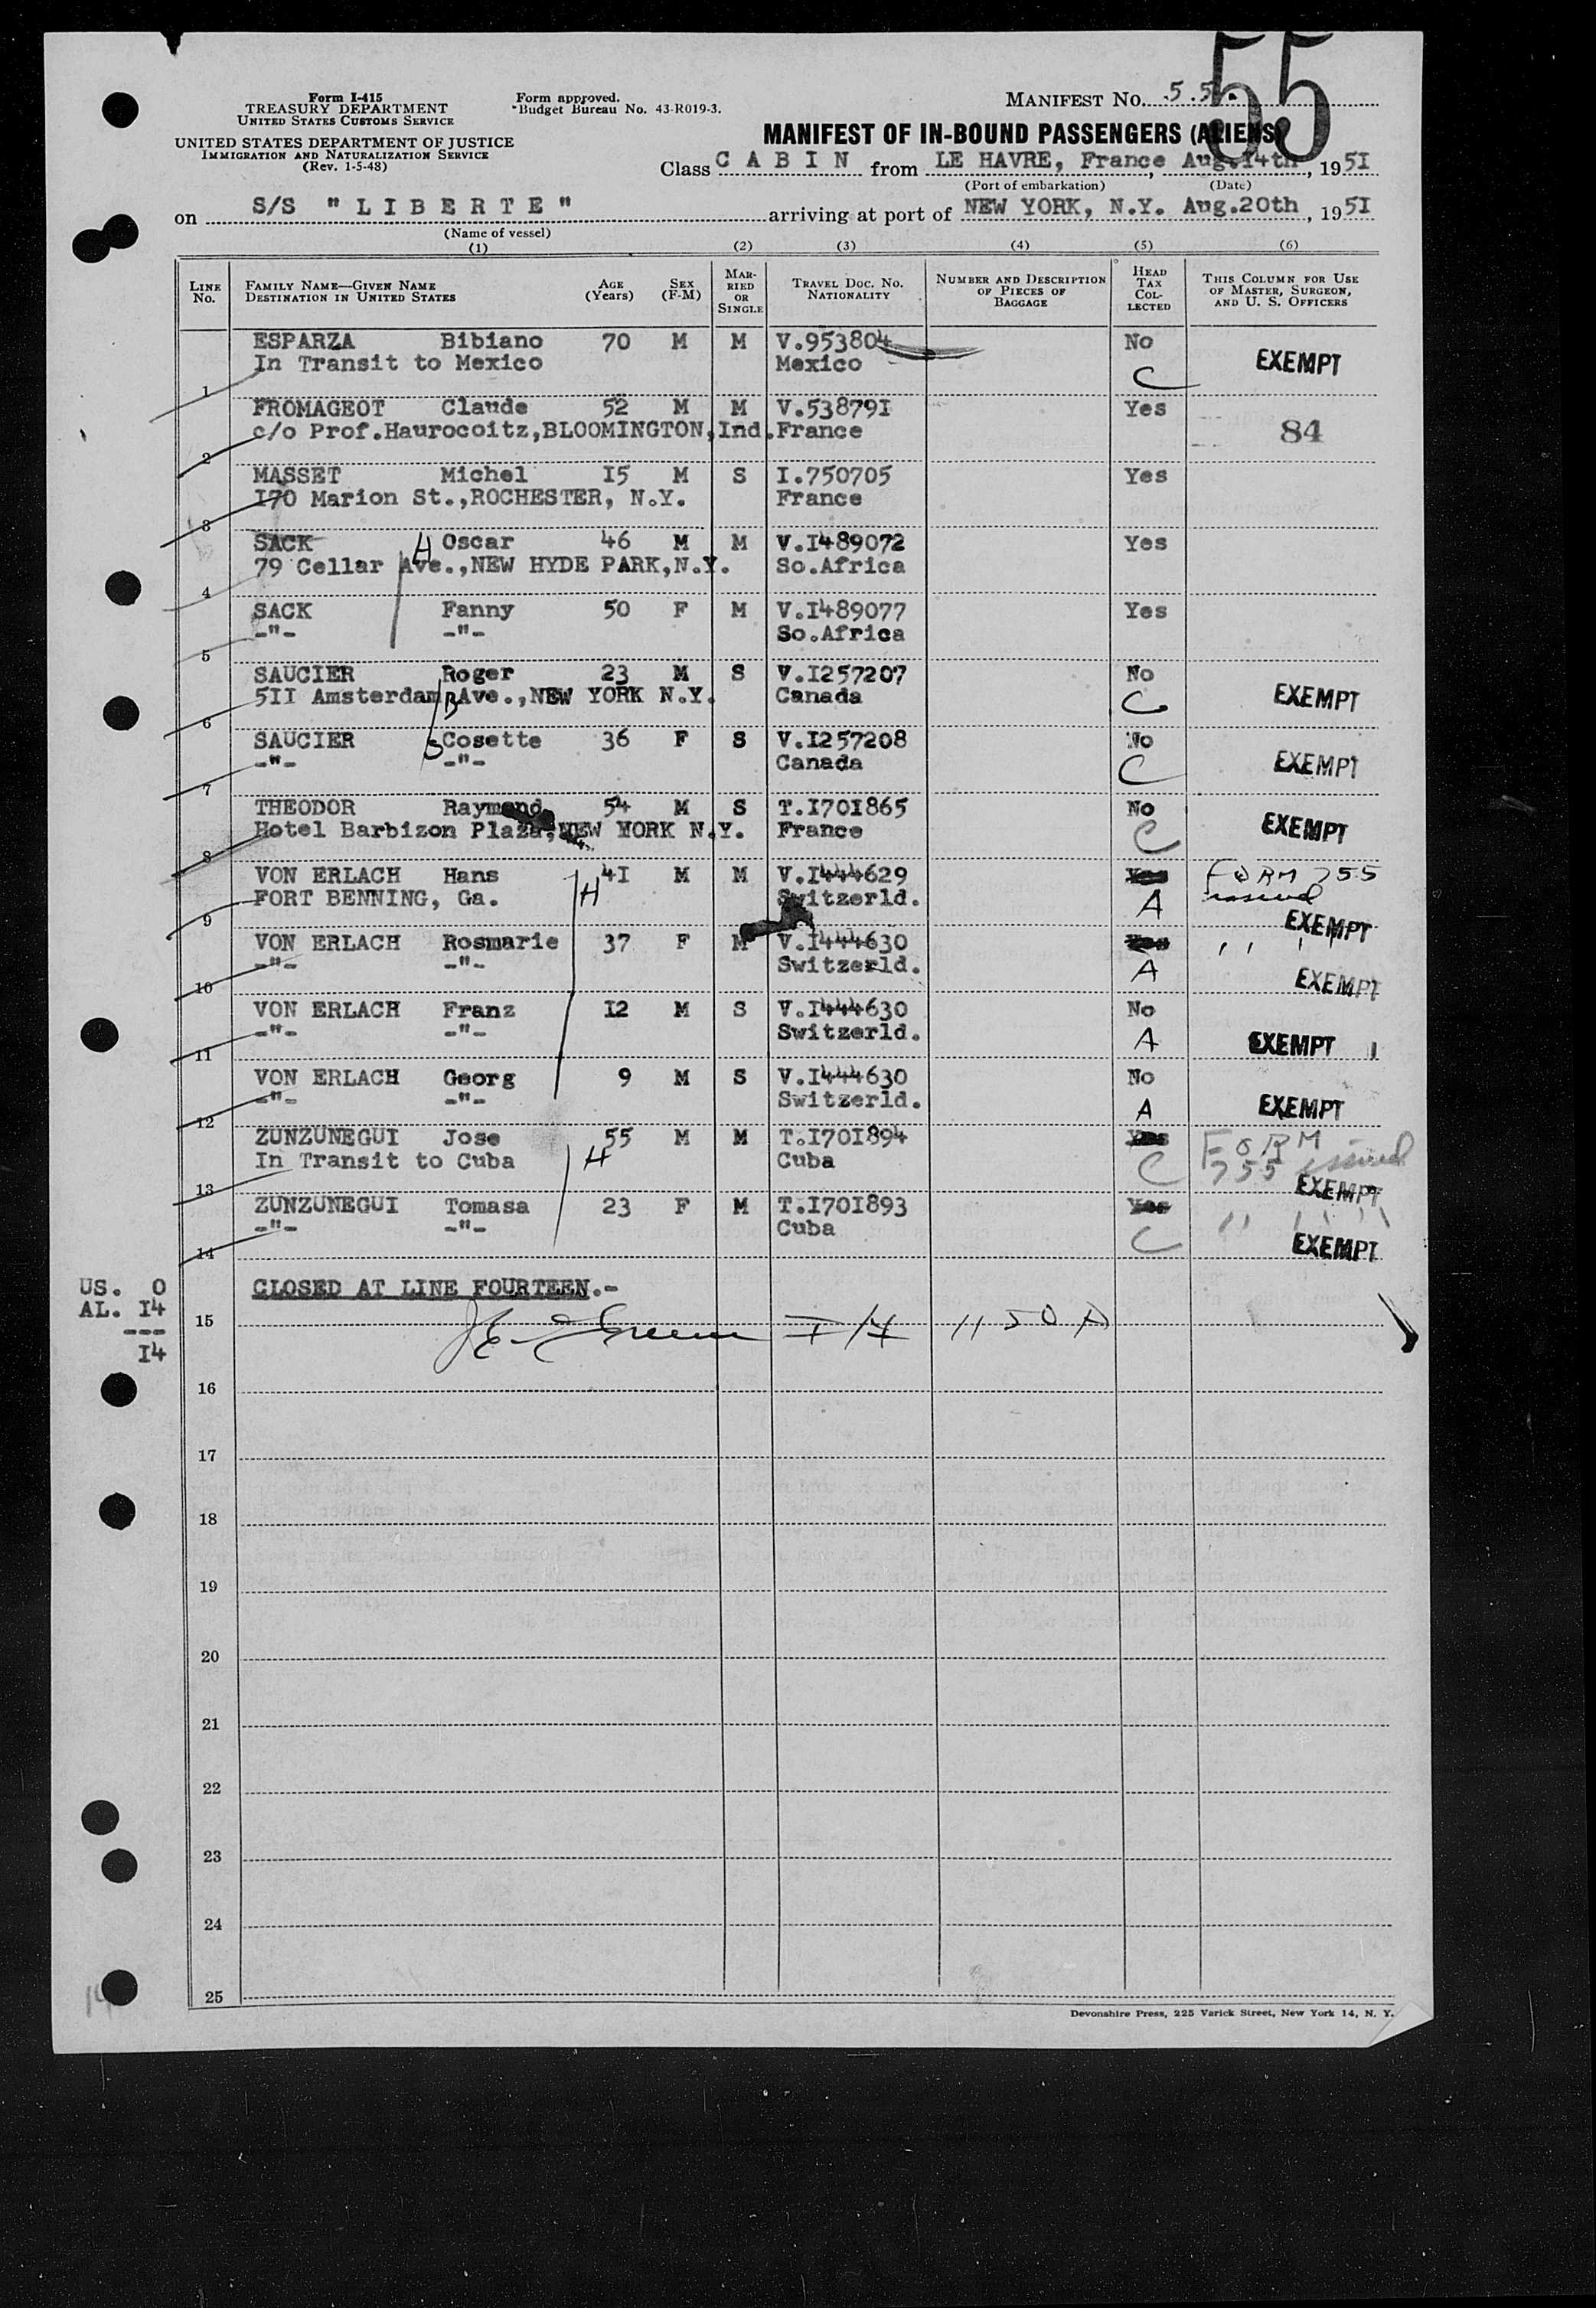 Form I-415
TREASURY DEPARTMENT
UNITED STATES CUSTOMS SERVICE
UNITED STATES DEPARTMENT OF JUSTICE
IMMIGRATION AND NATURALIZATION SERVICE
(Rev. 1-5-48)
Form approved.
Budget Bureau No. 43-R019-3.
55
MANIFEST No. 55.
MANIFEST OF IN-BOUND PASSENGERS (ALIENS)
Class C A B I N from LE HAVRE, France, Aug.14th, 1951
(Port of embarkation) (Date)
on S/S "LIBERTE" arriving at port of NEW YORK, N.Y. Aug.20th, 1951
(Name of vessel)
(1) (2) (3) (4) (5) (6)
LINE No. FAMILY NAME—GIVEN NAME DESTINATION IN UNITED STATES AGE (Years) SEX (F-M) MARRIED OR SINGLE TRAVEL DOC. No. NATIONALITY NUMBER AND DESCRIPTION OF PIECES OF BAGGAGE HEAD TAX COLLECTED THIS COLUMN FOR USE OF MASTER, SURGEON, AND U. S. OFFICERS
ESPARZA Bibiano 70 M M V.953804 No
In Transit to Mexico Mexico C EXEMPT
1
FROMAGEOT Claude 52 M M V.538791 Yes
c/o Prof.Haurocoitz,BLOOMINGTON,Ind. France 84
2
MASSET Michel I5 M S I.750705 Yes
I70 Marion St.,ROCHESTER, N.Y. France
3
SACK H Oscar 46 M M V.I489072 Yes
79 Cellar Ave.,NEW HYDE PARK,N.Y. So.Africa
4
SACK Fanny 50 F M V.I489077 Yes
-"- -"- So.Africa
5
SAUCIER Roger 23 M S V.I257207 No
5II Amsterdam Ave.,NEW YORK N.Y. Canada C EXEMPT
6
SAUCIER Cosette 36 F S V.I257208 No
-"- -"- Canada C EXEMPT
7
THEODOR Raymond 54 M S T.I70I865 No
Hotel Barbizon Plaza,NEW YORK N.Y. France C EXEMPT
8
VON ERLACH Hans 4I M M V.I444629 Yes FORM 755
FORT BENNING, Ga. H Switzerld. A issued EXEMPT
9
VON ERLACH Rosmarie 37 F M V.I444630 Yes " "
-"- -"- Switzerld. A EXEMPT
10
VON ERLACH Franz I2 M S V.I444630 No
-"- -"- Switzerld. A EXEMPT
11
VON ERLACH Georg 9 M S V.I444630 No
-"- -"- Switzerld. A EXEMPT
12
ZUNZUNEGUI Jose 55 M M T.I70I894 Yes FORM
In Transit to Cuba H Cuba C 755 issued EXEMPT
13
ZUNZUNEGUI Tomasa 23 F M T.I70I893 Yes " " "
-"- -"- Cuba C EXEMPT
14
US. 0 CLOSED AT LINE FOURTEEN.-
AL. I4
---
I4
15 1150 A
16
17
18
19
20
21
22
23
24
25
14
Devonshire Press, 225 Varick Street, New York 14, N. Y.